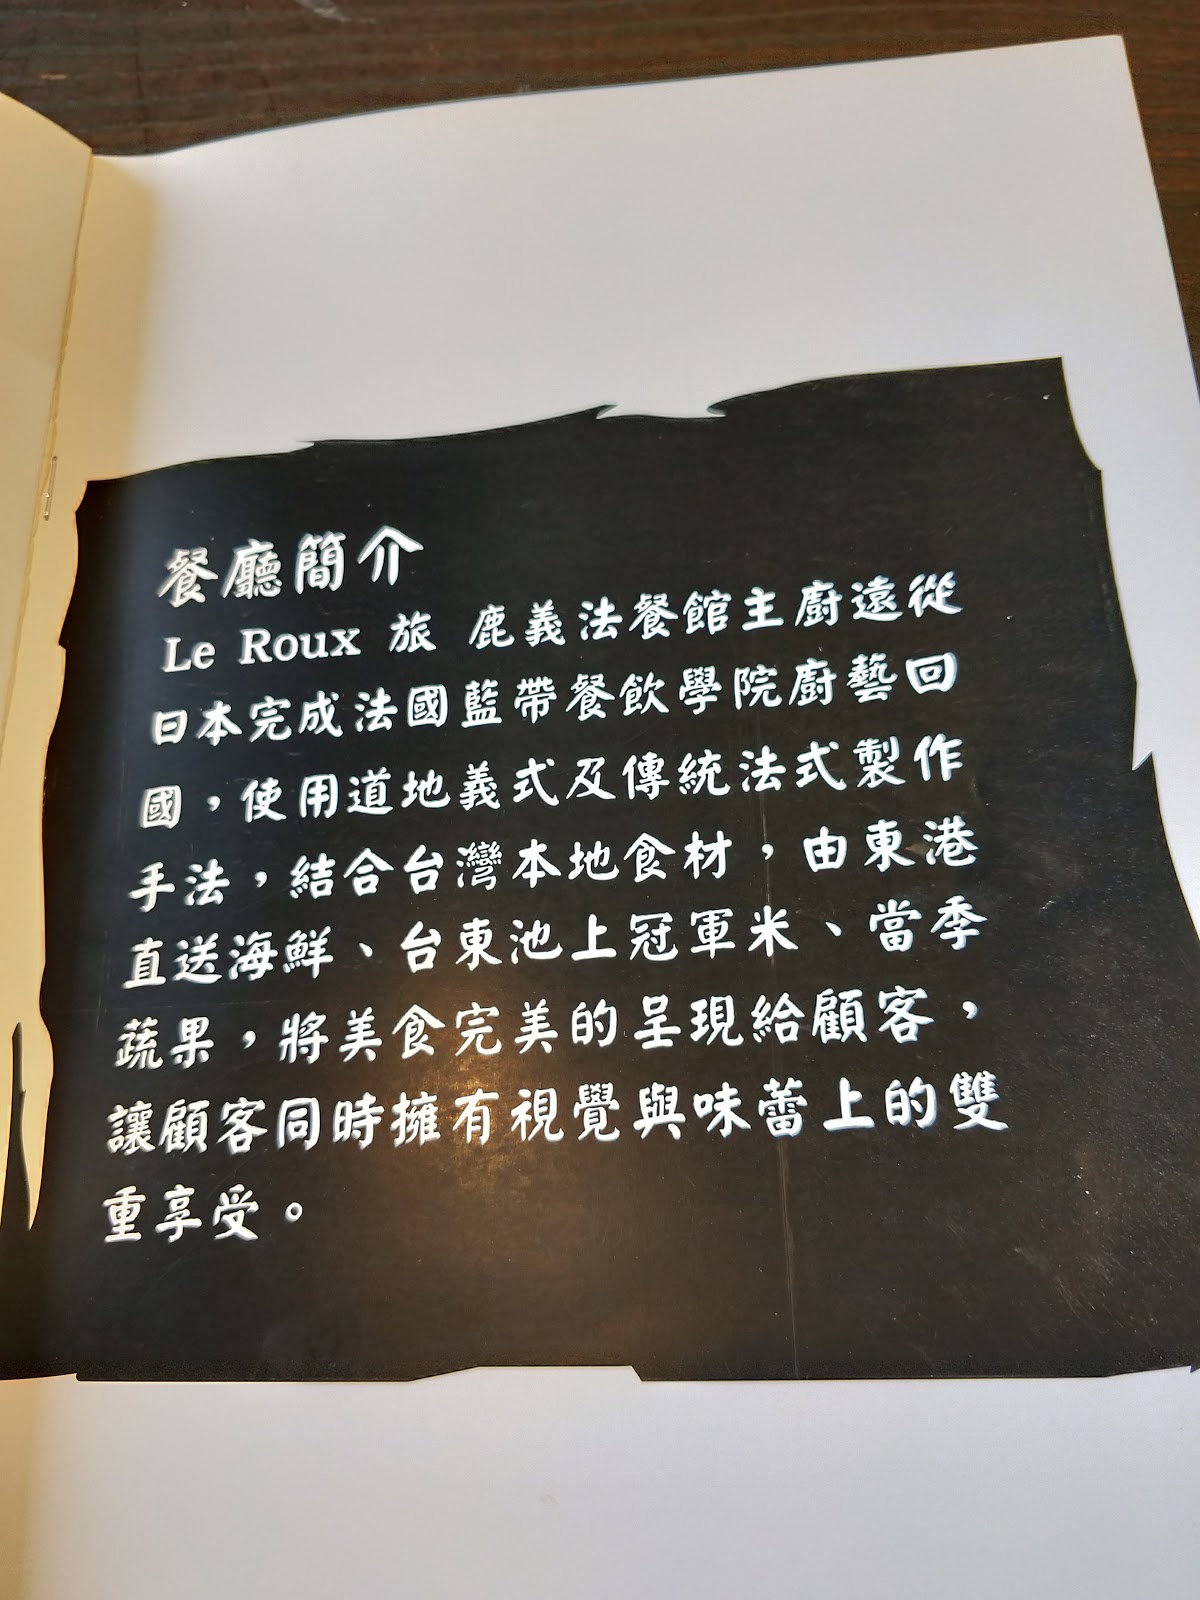 餐廳簡介
Le Roux 旅 鹿義法餐館主廚遠從
日本完成法國藍帶餐飲學院廚藝回
國，使用道地義式及傳統法式製作
手法，結合台灣本地食材，由東港
直送海鮮、台東池上冠軍米、當季
蔬果，將美食完美的呈現給顧客，
讓顧客同時擁有視覺與味蕾上的雙
重享受。